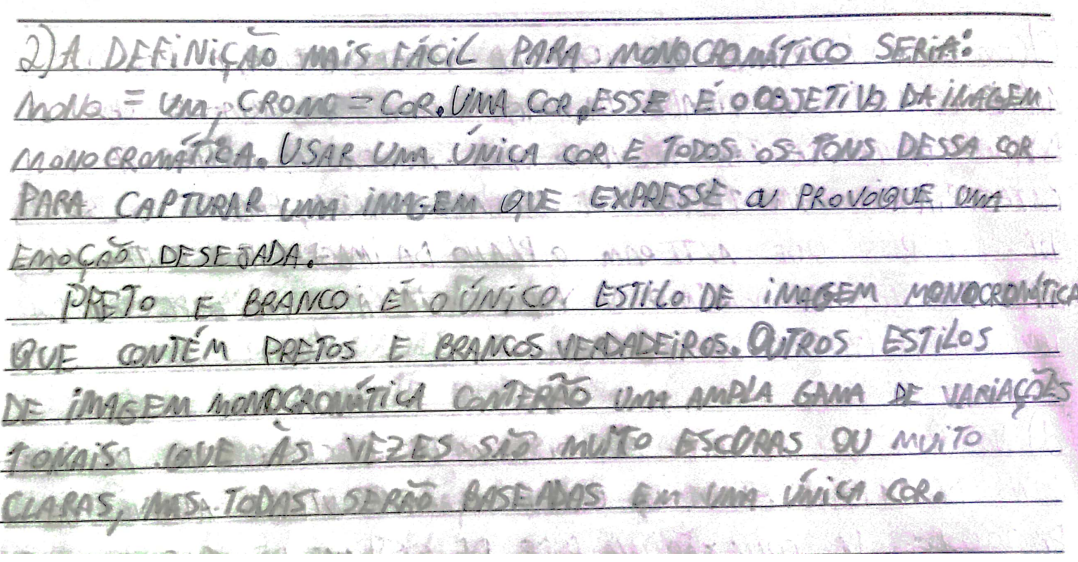 2) A DEFINIÇÃO MAIS FÁCIL PARA MONOCROMÁTICO SERIA:
MONO = UM, CROMO = COR. UMA COR, ESSE É O OBJETIVO DA IMAGEM
MONOCROMÁTICA. USAR UMA ÚNICA COR E TODOS OS TONS DESSA COR
PARA CAPTURAR UMA IMAGEM QUE EXPRESSE OU PROVOQUE UMA
EMOÇÃO DESEJADA.
PRETO E BRANCO É O ÚNICO ESTILO DE IMAGEM MONOCROMÁTICA
QUE CONTÉM PRETOS E BRANCOS VERDADEIROS. OUTROS ESTILOS
DE IMAGEM MONOCROMÁTICA CONTERÃO UMA AMPLA GAMA DE VARIAÇÕES
TONAIS QUE ÀS VEZES SÃO MUITO ESCURAS OU MUITO
CLARAS, MAS TODAS SERÃO BASEADAS EM UMA ÚNICA COR.